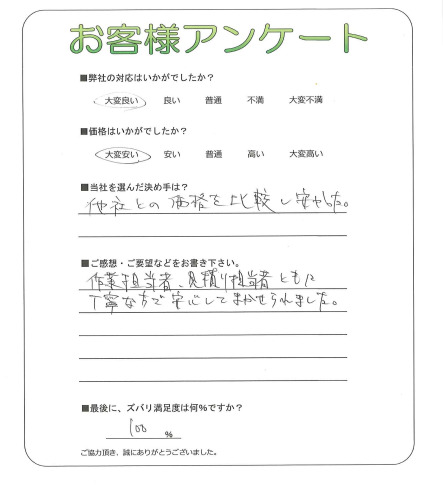 お客様アンケート
■弊社の対応はいかがでしたか?
大変良い 良い 普通 不満 大変不満
■価格はいかがでしたか?
大変安い 安い 普通 高い 大変高い
■当社を選んだ決め手は?
他社との価格を比較し安かした。
■ご感想・ご要望などをお書き下さい。
作業担当者、見積り担当者ともに
丁寧な方で安心してまかせられました。
■最後に、ズバリ満足度は何%ですか?
100 %
ご協力頂き、誠にありがとうございました。